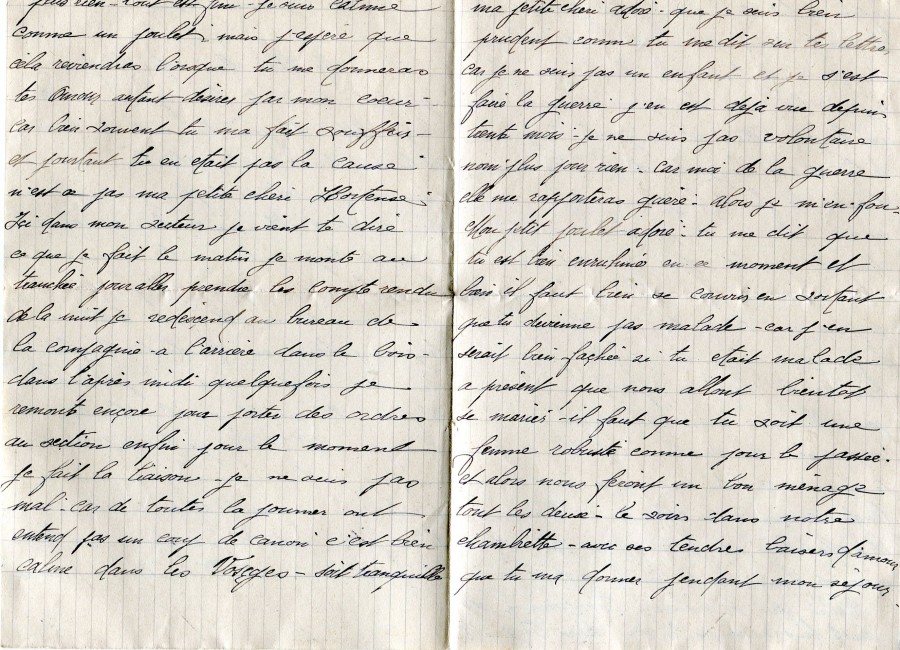 plus rien - tout est fini - je suis calme
comme un poulet, mais j'espère que
cela reviendras l'orsque tu me donneras
tes amour autant désires par mon coeur -
car bien souvent tu ma fait souffrir -
et pourtant tu en etait pas la cause
n'est ce pas ma petite chéri Hortense
Ici dans mon secteur je vient te dire
ce que je fait le matin je monte au
tranchée pour aller prendre les compte rendu
de la nuit je redescend au bureau de
la compagnie - a l'arriere dans le bois -
dans l'après midi quelquefois je
remonte encore pour porter des ordres
au section enfin pour le moment
je fait la liaison - je ne suis pas
mal - car de toutes la journer ont
entend pas un coup de canon c'est bien
calme dans les Vosges - soit tranquille
ma petite chéri adoré - que je suis bien
prudent comm tu me dit sur tes lettre,
car je ne suis pas un enfant et je s'est
faire la guerre j'en est déjà vue depuis
trente mois - je ne suis pas volontaire
nom plus pour rien - car moi de la guerre
elle me rapporteras guère - alors je m'en fou -
Mon petit poulet adoré - tu me dit que
tu est bien enrhumée en ce moment et
bien il faut bien se couvrir en sortant
que tu devienne pas malade - car j'en
serait bien fachée si tu etait malade
a présent que nous allont bientot
se marier - il faut que tu soit une
femme robuste comme pour le passée -
et alors nous feront un bon menage
tout les deux - le soirs dans notre
chambrette - avec ses tendres baisers d'amour
que tu ma donner pendant mon séjour -